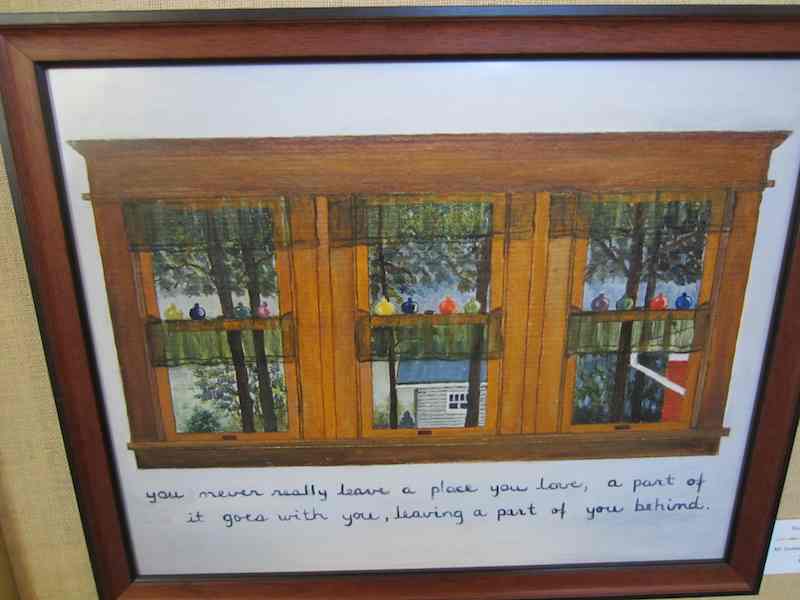 you never really leave a place you love, a part of
it goes with you, leaving a part of you behind.